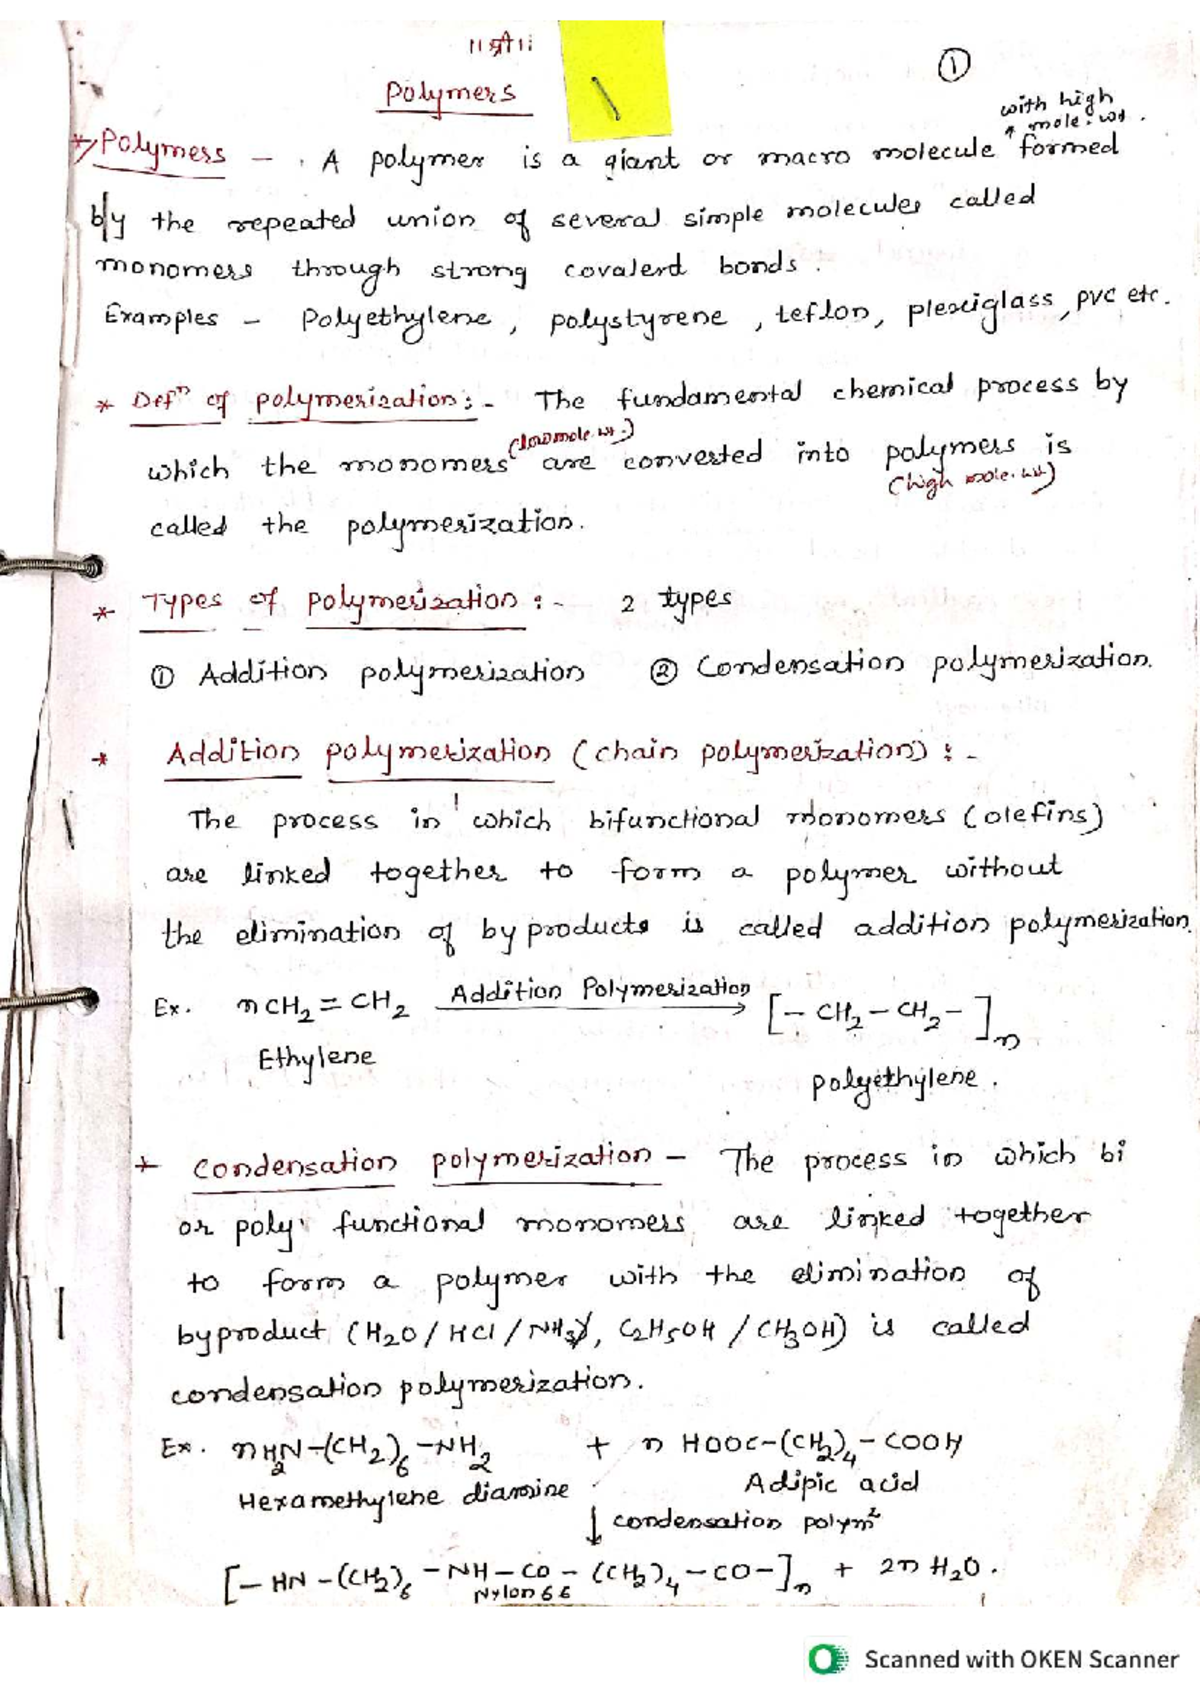 ॥श्री॥
①
Polymers
with high
mole. wt.
* Polymers - A polymer is a giant or macro molecule formed
by the repeated union of several simple molecules called
monomers through strong covalent bonds.
Examples - Polyethylene, polystyrene, teflon, plexiglass, pvc etc.
* Defⁿ of polymerization :- The fundamental chemical process by
(low mole. wt.)
which the monomers are converted into polymers is
(high mole. wt)
called the polymerization.
* Types of polymerization :- 2 types
① Addition polymerization ② Condensation polymerization.
* Addition polymerization (chain polymerization) :-
The process in which bifunctional monomers (olefins)
are linked together to form a polymer without
the elimination of by products is called addition polymerization.
Ex. n CH₂ = CH₂ Addition Polymerization → [- CH₂ - CH₂ -]n
Ethylene
polyethylene.
* Condensation polymerization - The process in which bi
or poly functional monomers are linked together
to form a polymer with the elimination of
byproduct (H₂O / HCl / NH₃, C₂H₅OH / CH₃OH) is called
condensation polymerization.
Ex. n H₂N-(CH₂)₆-NH₂ + n HOOC-(CH₂)₄-COOH
Hexamethylene diamine Adipic acid
↓ condensation polymⁿ
[- HN - (CH₂)₆ - NH - CO - (CH₂)₄ - CO -]n + 2n H₂O.
Nylon 66
Scanned with OKEN Scanner